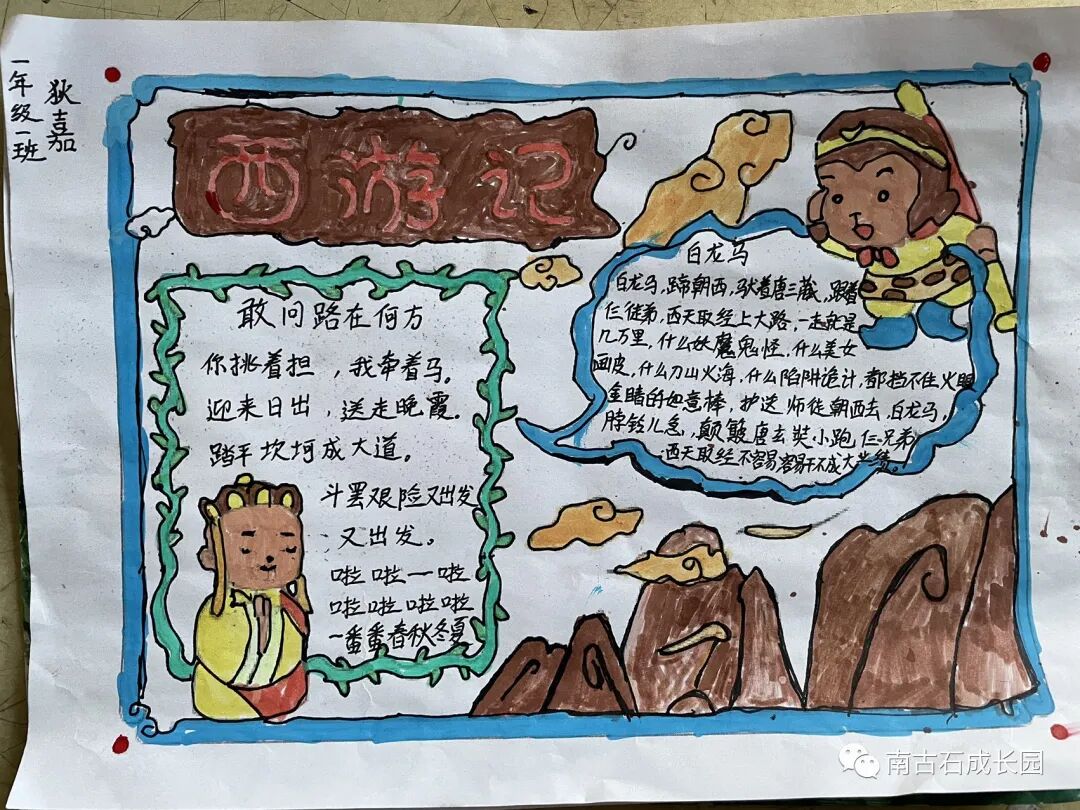 一年级一班
狄嘉
西游记
敢问路在何方
你挑着担，我牵着马。
迎来日出，送走晚霞。
踏平坎坷成大道。
斗罢艰险又出发
又出发。
啦啦一啦
啦啦啦啦
一番番春秋冬夏
白龙马
白龙马，蹄朝西，驮着唐三藏，跟着
仨徒弟，西天取经上大路，一走就是
几万里，什么妖魔鬼怪，什么美女
画皮，什么刀山火海，什么陷阱诡计，都挡不住火眼
金睛的如意棒，护送师徒朝西去，白龙马，
脖铃儿急，颠簸唐玄奘小跑仨兄弟
西天取经不容易容易干不成大业绩。
南古石成长园